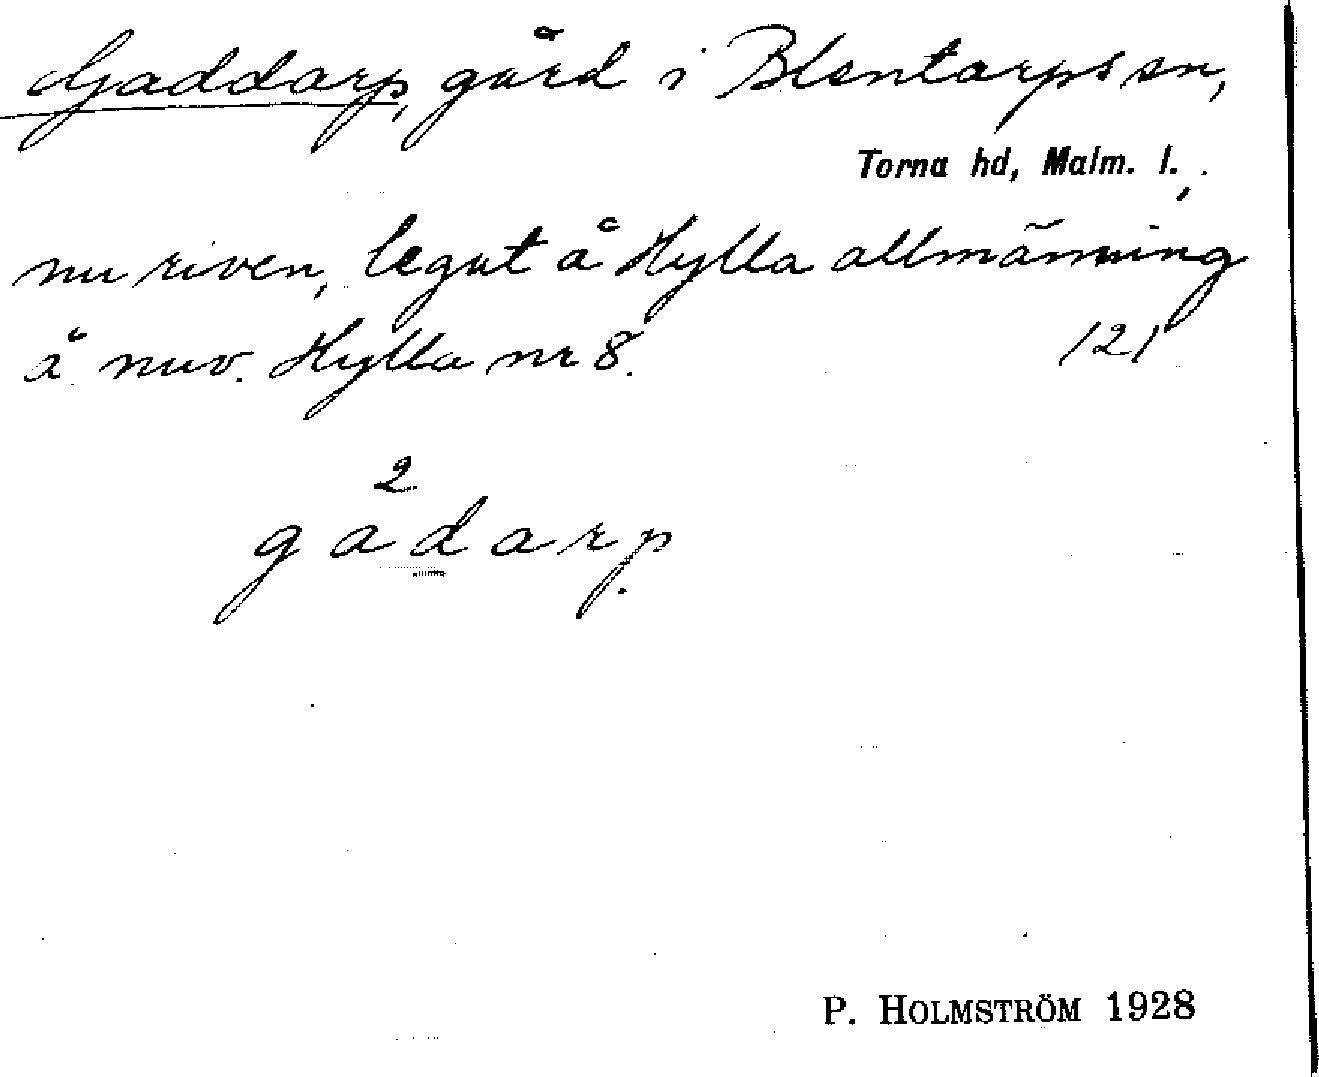 Gaddarp, gård i Blentarps sn,
Torna hd, Malm. l.,
nu riven, legat å Hylla allmänning
å nuv. Hylla nr 8. 121
2
gadarp.
P. HOLMSTRÖM 1928